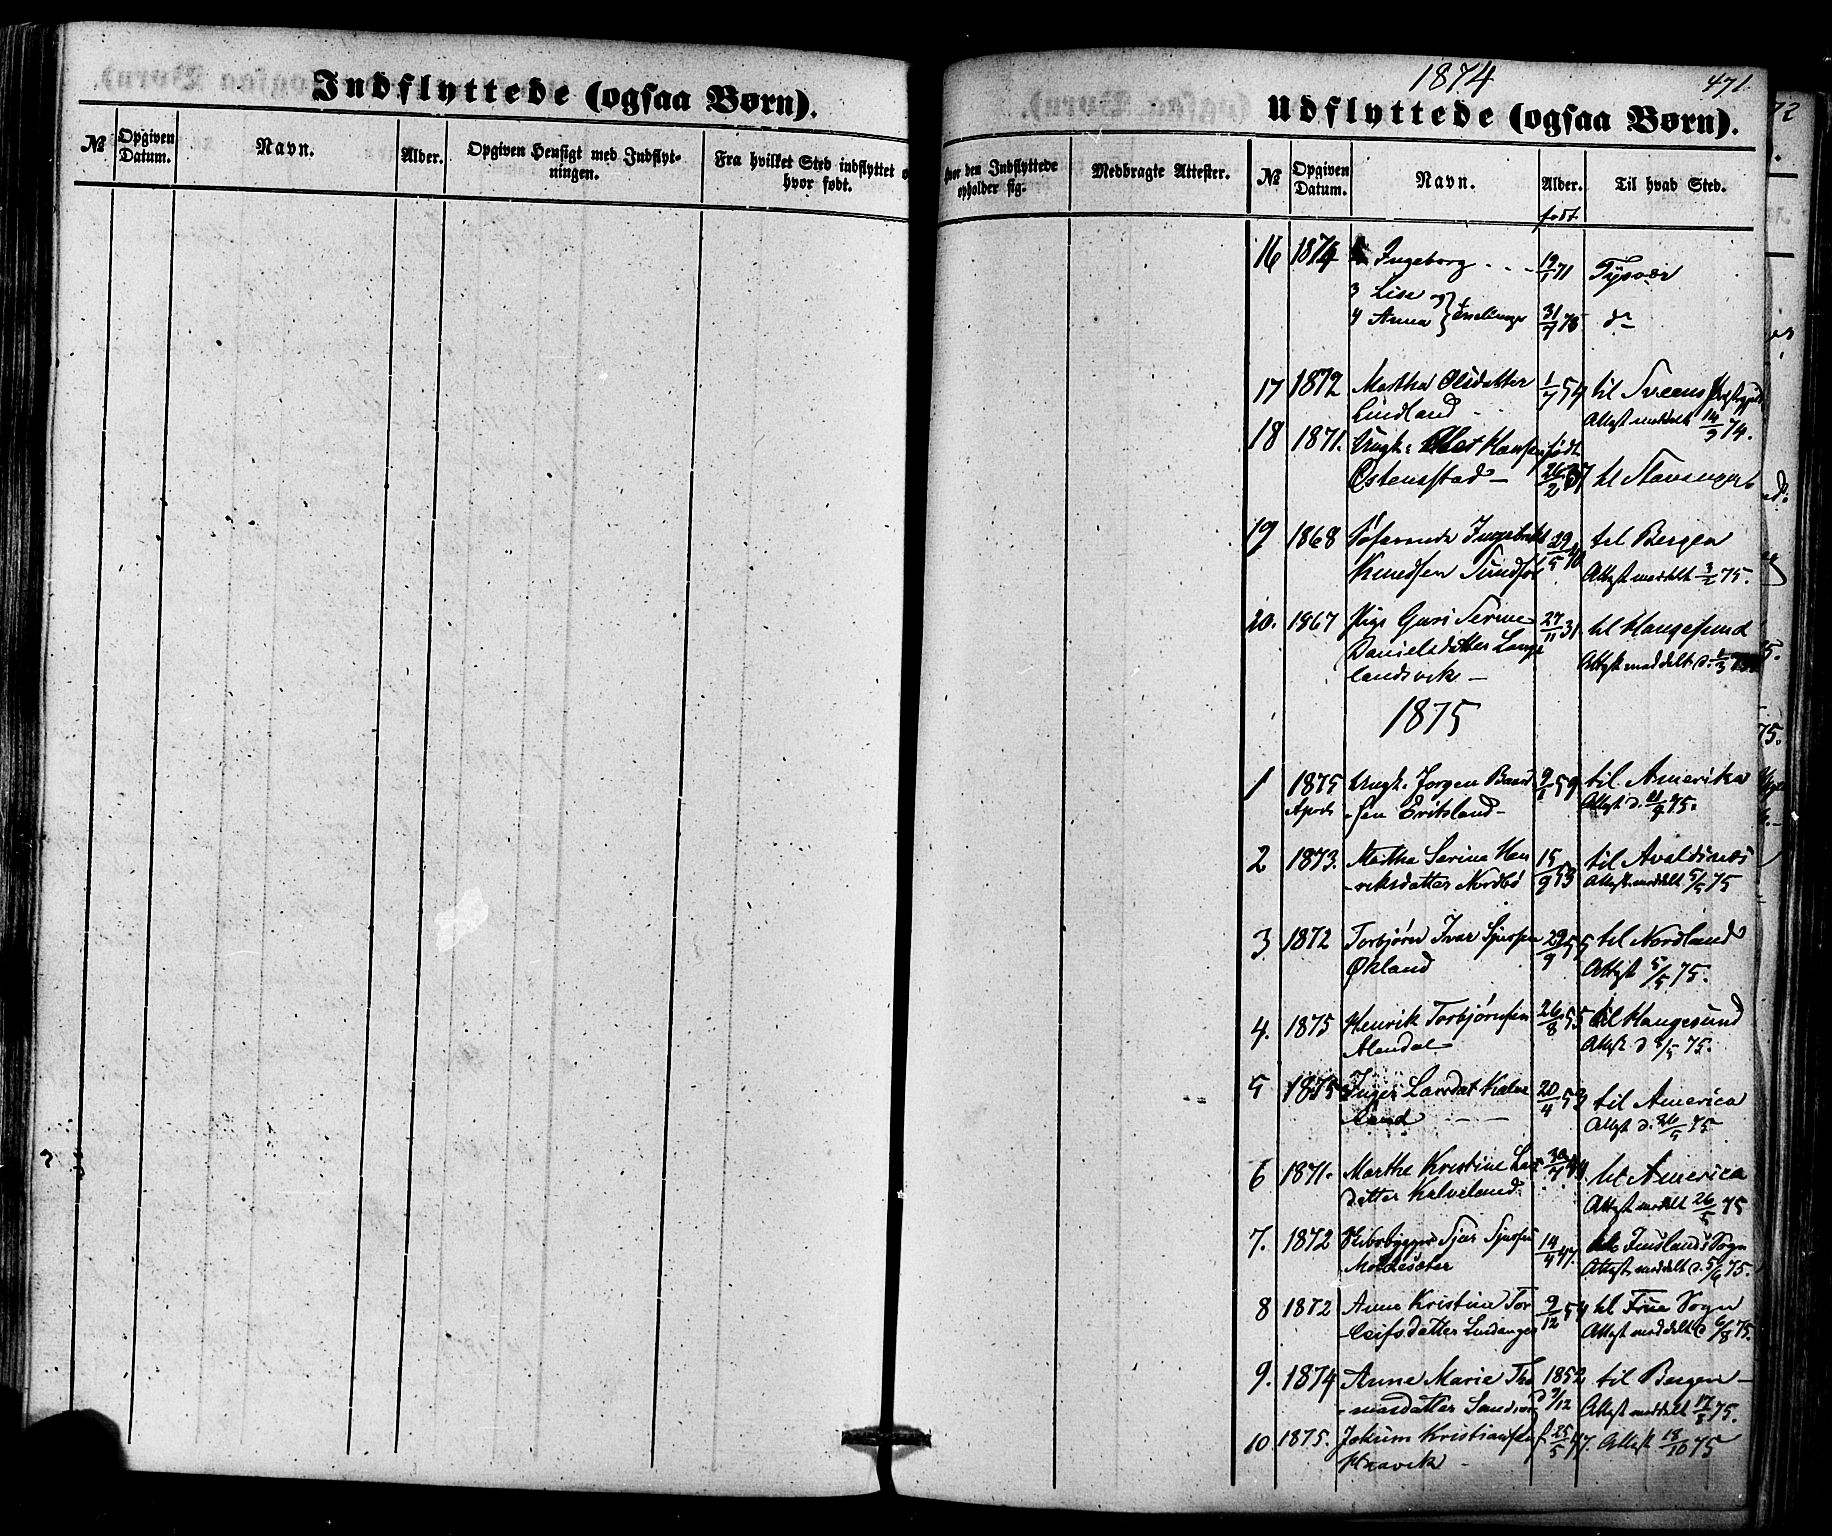 Indflyttede (ogsaa Børn).
№ Opgiven Datum. Navn. Alder. Opgiven Hensigt med Indflytningen. Fra hvilket Sted indflyttet hvor født.
1874 471
Udflyttede (ogsaa Børn).
hvor den Indflyttede opholder sig. Medbragte Attester. № Opgiven Datum. Navn. Alder. Til hvad Sted.
født
16 1874 Ingeborg 19/1 71 Tysvær
3 Lise og
4 Anna } Tvillinger 31/7 73 do
17 1872 Martha Olsdatter 1/7 54 til Sveens Præstegjeld
Lindland Attest meddelt 14/9 74.
18 1871. Ungk: Hansen født
Østensstad 26/2 til Stavanger
19 1868 Knudsen 29/5 40 til Bergen
Attest meddelt 3/2 75.
20. 1867 Pige Guri Serine 27/11 31 til Haugesund
Danielsdatter Lange Attest meddelt d. 1/3
landsvik
1875
1 1875 Ungk. Jørgen Baard 9/1 59 til Amerika
April -sen Eritsland Attest d. 11/4 75.
2 1873. Martha Serina Hen 15/9 53 til Avaldsnæs
-riksdatter Nordbø Attest meddelt 5/5 75
3 1872 Torbjørn Ivar Sjursen 29/9 55 til Nordland
Økland Attest 5/5 75.
4. 1875 Henrik Torbjørnsen 26/8 55 til Haugesund
Alendal Attest d 8/5 75.
5 1875 Inger Larsdat Kalve 20/4 til America
land Attest d. 26/5 75
6 1871. Marthe Kristine Lars 30/4 til America
datter Kalveland Attest meddelt 26/5 75
7. 1872 Skibsbygger Sjur Sjursen 14/4 47. Sogn
Attest meddelt d. 5/6 75.
8 1872 Anna Kristina Tor 9/12 54 til Sogn
-leifsdatter Lindanger Attest meddelt d 6/8 75.
9. 1874 Anne Marie Tho 1852 til Bergen
-masdatter d 9/12 Attest meddelt 17/8 75.
10 1875. Jokum Kristiansen f. 25/5 47. Attest 18/10 75